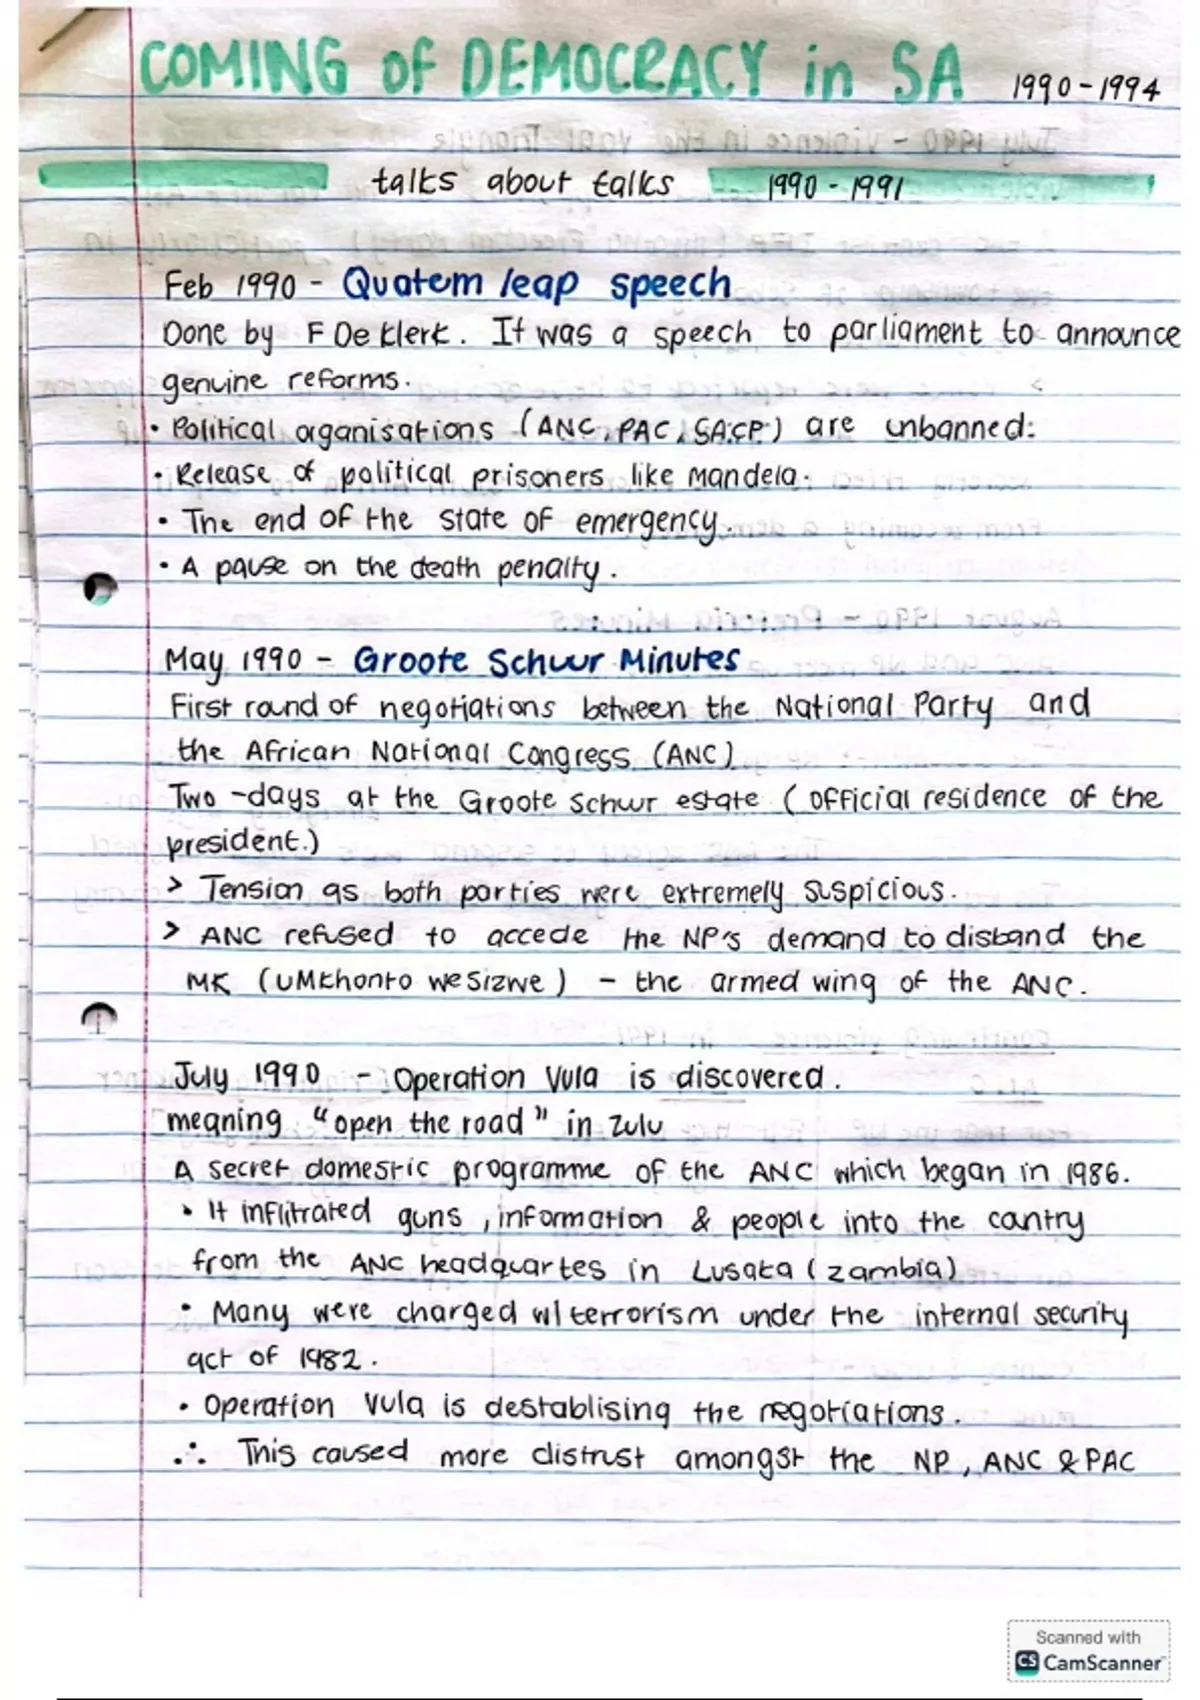 COMING OF DEMOCRACY in SA 1990-1994
talks about talks 1990-1991
Feb 1990 - Quatem leap speech
Done by F De Klerk. It was a speech to parliament to announce
genuine reforms.
• Political organisations (ANC, PAC, SACP) are unbanned.
• Release of political prisoners like Mandela.
• The end of the state of emergency.
• A pause on the death penalty.
May 1990 - Groote Schuur Minutes
First round of negotiations between the National Party and
the African National Congress (ANC)
Two-days at the Groote Schuur estate (official residence of the
president.)
> Tension as both parties were extremely suspicious.
> ANC refused to accede the NP's demand to disband the
MK (uMkhonto weSizwe) - the armed wing of the ANC.
July 1990 - Operation Vula is discovered.
meaning "open the road" in Zulu
A secret domestic programme of the ANC which began in 1986.
• It inflitrated guns, information & people into the cantry
from the ANC headquartes in Lusaka (Zambia)
• Many were charged w/ terrorism under the internal security
act of 1982.
• Operation Vula is destablising the negotiations.
∴ This caused more distrust amongst the NP, ANC & PAC
Scanned with
CS CamScanner